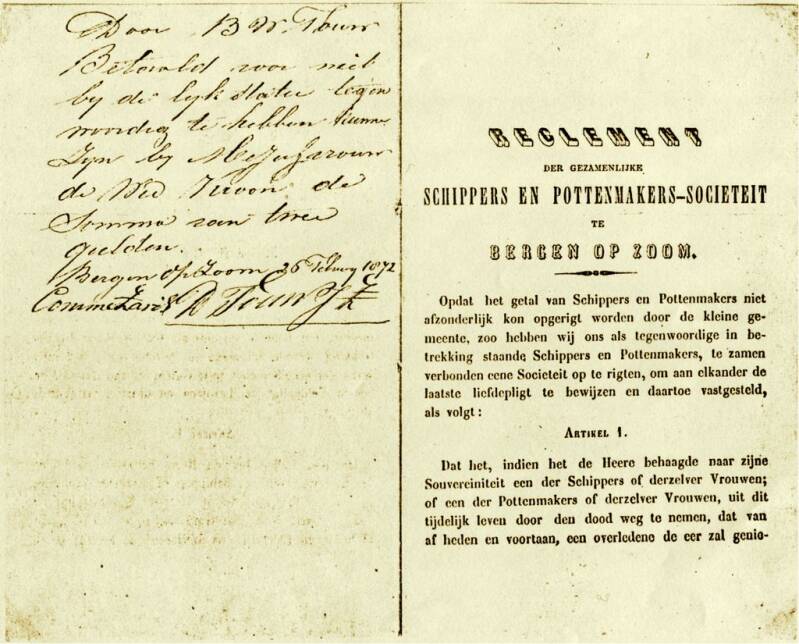 Door B W. Touw
Betaald voor niet
by de lyk statie tegen
woordig te hebben
Zyn by Mejufvrouw
de Wed de
Somma van twee
gulden.
Bergen Op Zoom 26 1872
Touw
REGLEMENT
DER GEZAMENLIJKE
SCHIPPERS EN POTTENMAKERS-SOCIETEIT
TE
BERGEN OP ZOOM.
Opdat het getal van Schippers en Pottenmakers niet
afzonderlijk kon opgerigt worden door de kleine ge-
meente, zoo hebben wij ons als tegenwoordige in be-
trekking staande Schippers en Pottenmakers, te zamen
verbonden eene Societeit op te rigten, om aan elkander de
laatste liefdepligt te bewijzen en daartoe vastgesteld,
als volgt:
ARTIKEL 1.
Dat het, indien het de Heere behaagde naar zijne
Souvereiniteit een der Schippers of derzelver Vrouwen;
of een der Pottenmakers of derzelver Vrouwen, uit dit
tijdelijk leven door den dood weg te nemen, dat van
af heden en voortaan, een overledene de eer zal genio-